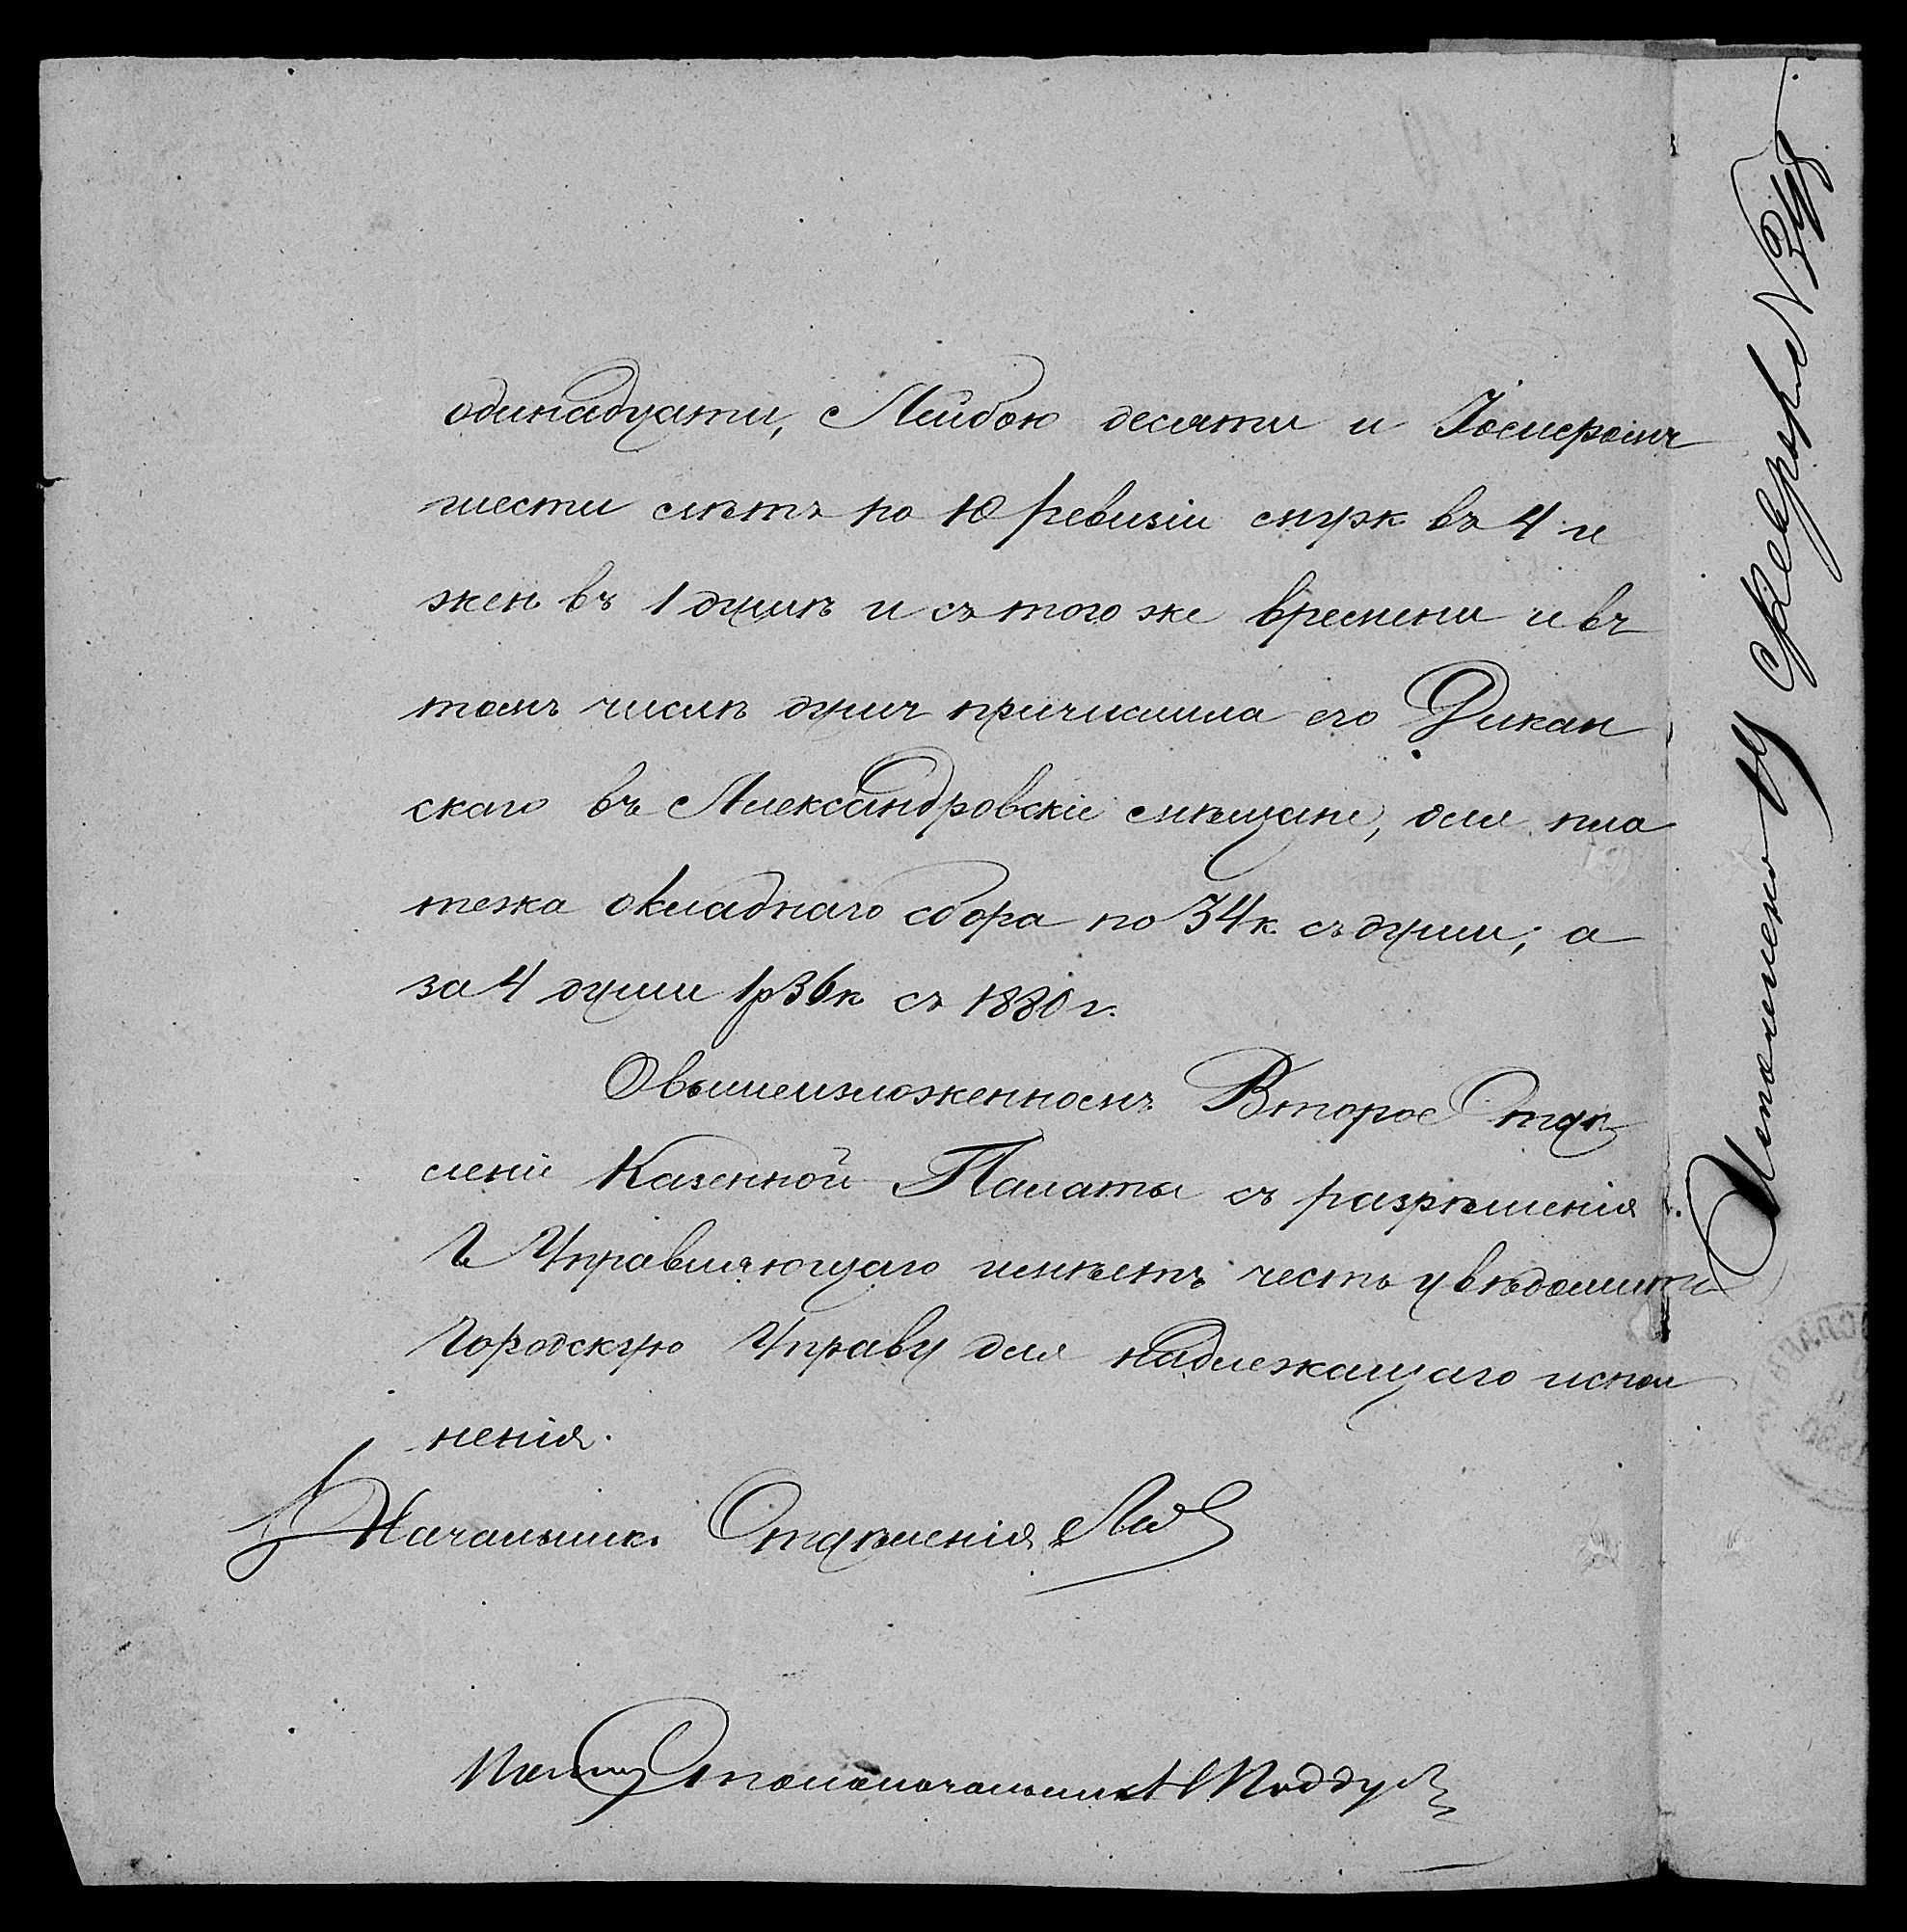 одинадцати, Лейбою десяти и Іосифомъ
шести лѣтъ по 10 ревизіи муж въ 4 и
жен въ 1 душѣ и съ того же времени и въ
томъ числѣ душъ причислила его Дикан
скаго въ Александровскіе мѣщане, для пла
тежа окладнаго сбора по 34 к. съ души; а
за 4 души 1 р 36 к съ 1880 г.
О вышеизложенномъ Второе Отдѣ
леніе Казенной Палаты съ разрѣшенія
Г. Управляющаго имѣетъ честь увѣдомить
Городскую Управу для надлежащаго испол
ненія.
Начальникъ Отдѣленія
Столоначальника
Исполнено 14 Февраля №